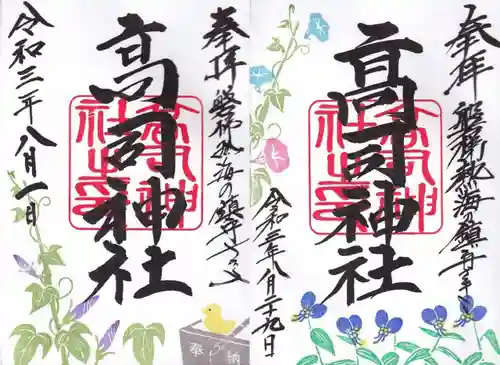 奉拝 磐梯熱海の鎮守さま
高司神社
高司神
社之印
令和三年八月一日
奉納
奉拝 磐梯熱海の鎮守さま
高司神社
高司神
社之印
令和三年八月二十九日